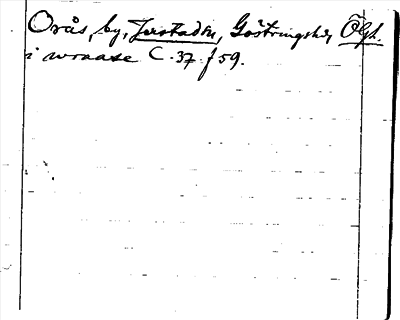 Orås, by, Järstads sn, Göstrings hd, Ögl.
i wraase C. 37. f 59.